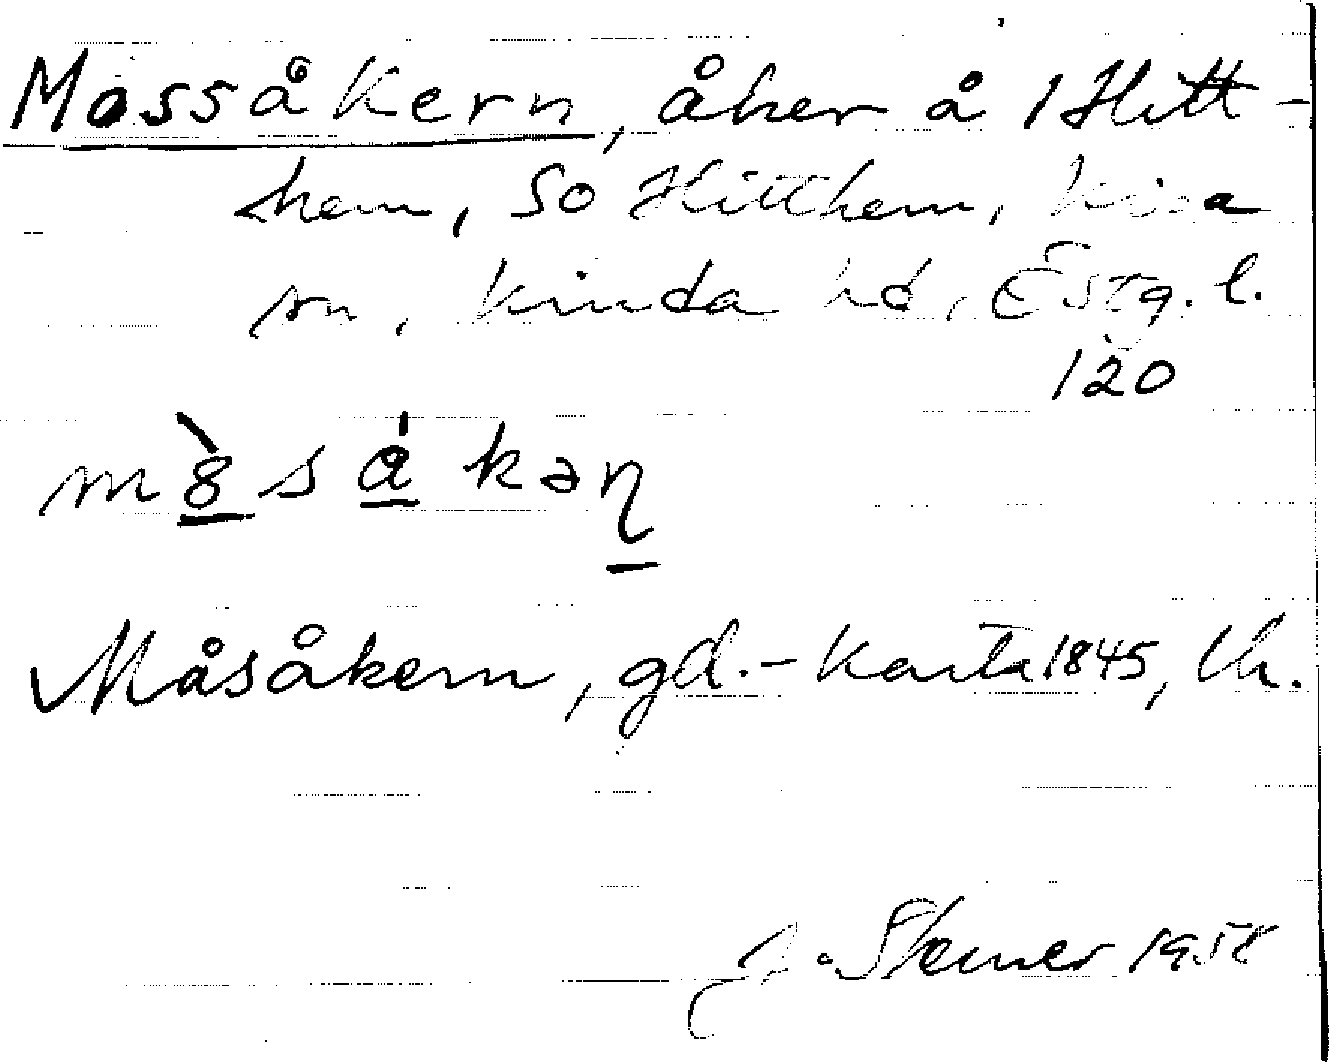 Mossåkern, åker å 1 Hitt-
hem, SO Hitthem, Kisa
sn, Kinda hd, Östg. l.
120
m8såkəɳ
Måsåkern, gd. - Karta 1845, Ch.
J. Skemer 1958